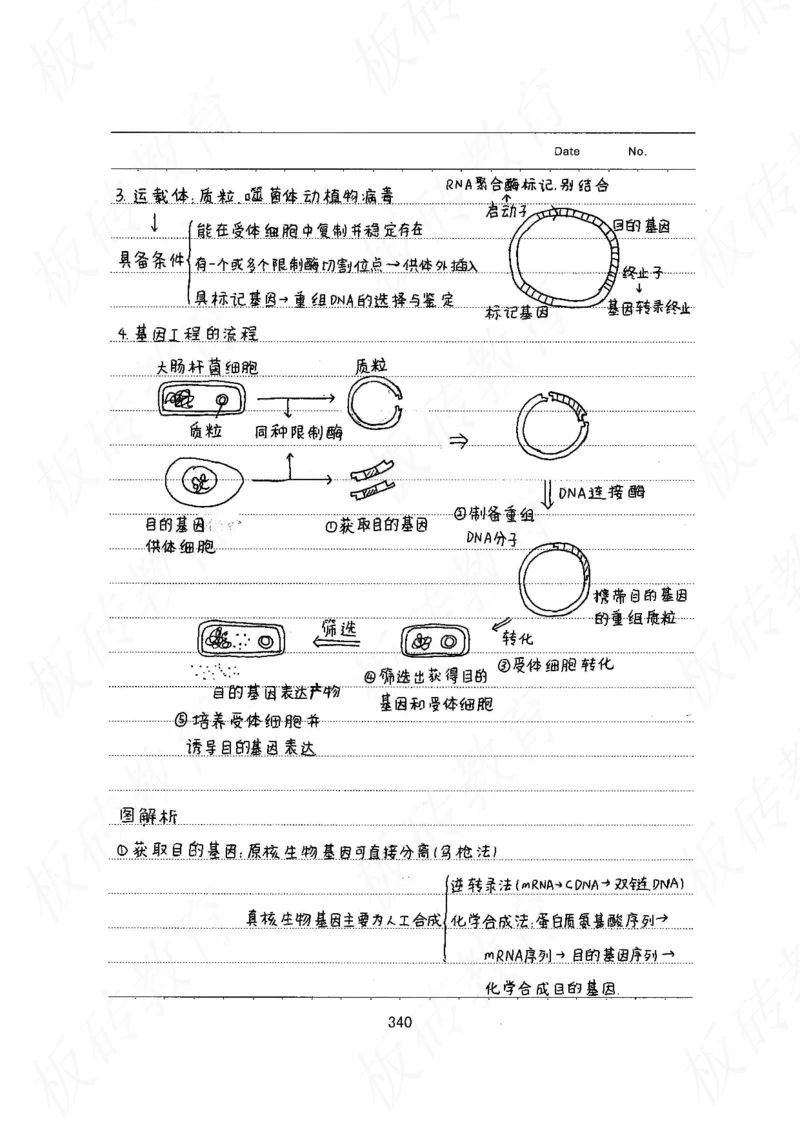 Date No.
3. 运载体：质粒、噬菌体动植物病毒
具备条件
能在受体细胞中复制并稳定存在
有一个或多个限制酶切割位点→供体外插入
具标记基因→重组DNA的选择与鉴定
RNA聚合酶标记、别结合
启动子
目的基因
终止子
标记基因
基因转录终止
4. 基因工程的流程
大肠杆菌细胞
质粒
质粒
同种限制酶
DNA连接酶
目的基因
供体细胞
①获取目的基因
②制备重组
DNA分子
携带目的基因
的重组质粒
转化
③受体细胞转化
筛选
④筛选出获得目的
基因和受体细胞
目的基因表达产物
⑤培养受体细胞并
诱导目的基因表达
图解析
①获取目的基因：原核生物基因可直接分离(鸟枪法)
真核生物基因主要为人工合成
逆转录法(mRNA→CDNA→双链DNA)
化学合成法：蛋白质氨基酸序列→
mRNA序列→目的基因序列→
化学合成目的基因.
340
板砖教育